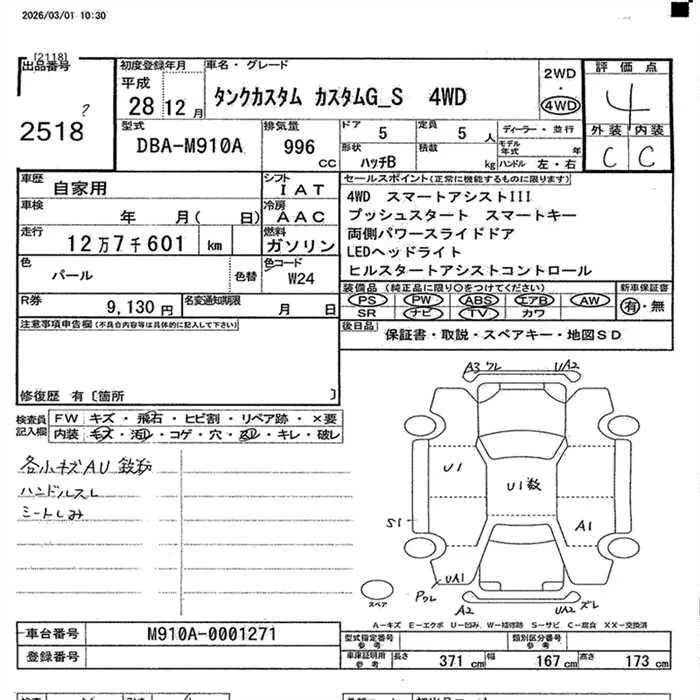 2026/03/01 10:30
[2118]
出品番号
?
2518
初度登録年月
平成
28 12 月
車名・グレード
タンクカスタム カスタムG_S 4WD
2WD
・
4WD
評価点
4
外装 内装
C C
型式
DBA-M910A
排気量
996 CC
ドア
5
定員
5 人
形状
ハッチB
積載
kg
ディーラー・並行
モデル年式 年
ハンドル 左・右
車歴
自家用
シフト
IAT
車検
年 月( 日)
冷房
AAC
走行
12万7千601 km
燃料
ガソリン
色
パール
色替
色コード
W24
R券
9,130 円
名変通知期限
月 日
セールスポイント(正常に機能するものに限ります)
4WD スマートアシストIII
プッシュスタート スマートキー
両側パワースライドドア
LEDヘッドライト
ヒルスタートアシストコントロール
装備品 (純正品に限り○をつけてください)
PS PW ABS エアB AW
SR ナビ TV カワ
新車保証書
有・無
後日品
保証書・取説・スペアキー・地図SD
注意事項申告欄(不具合内容等は具体的に記入して下さい)
修復歴 有〔箇所 〕
検査員記入欄
FW キズ・飛石・ヒビ割・リペア跡・×要
内装 キズ・汚レ・コゲ・穴・スレ・キレ・破レ
各小キズAU
ハンドルスレ
シートしみ
A3 ワレ UA2
U1
U1 数
S1
A1
UA1
Pワレ
A2
UA2 ズレ
スペア
A-キズ E-エクボ U-凹み W-補修跡 S-サビ C-腐食 XX-交換済
車台番号
M910A-0001271
登録番号
型式指定番号 参考
類別区分番号 参考
車庫証明用 参考
長さ 371 cm 幅 167 cm 高さ 173 cm